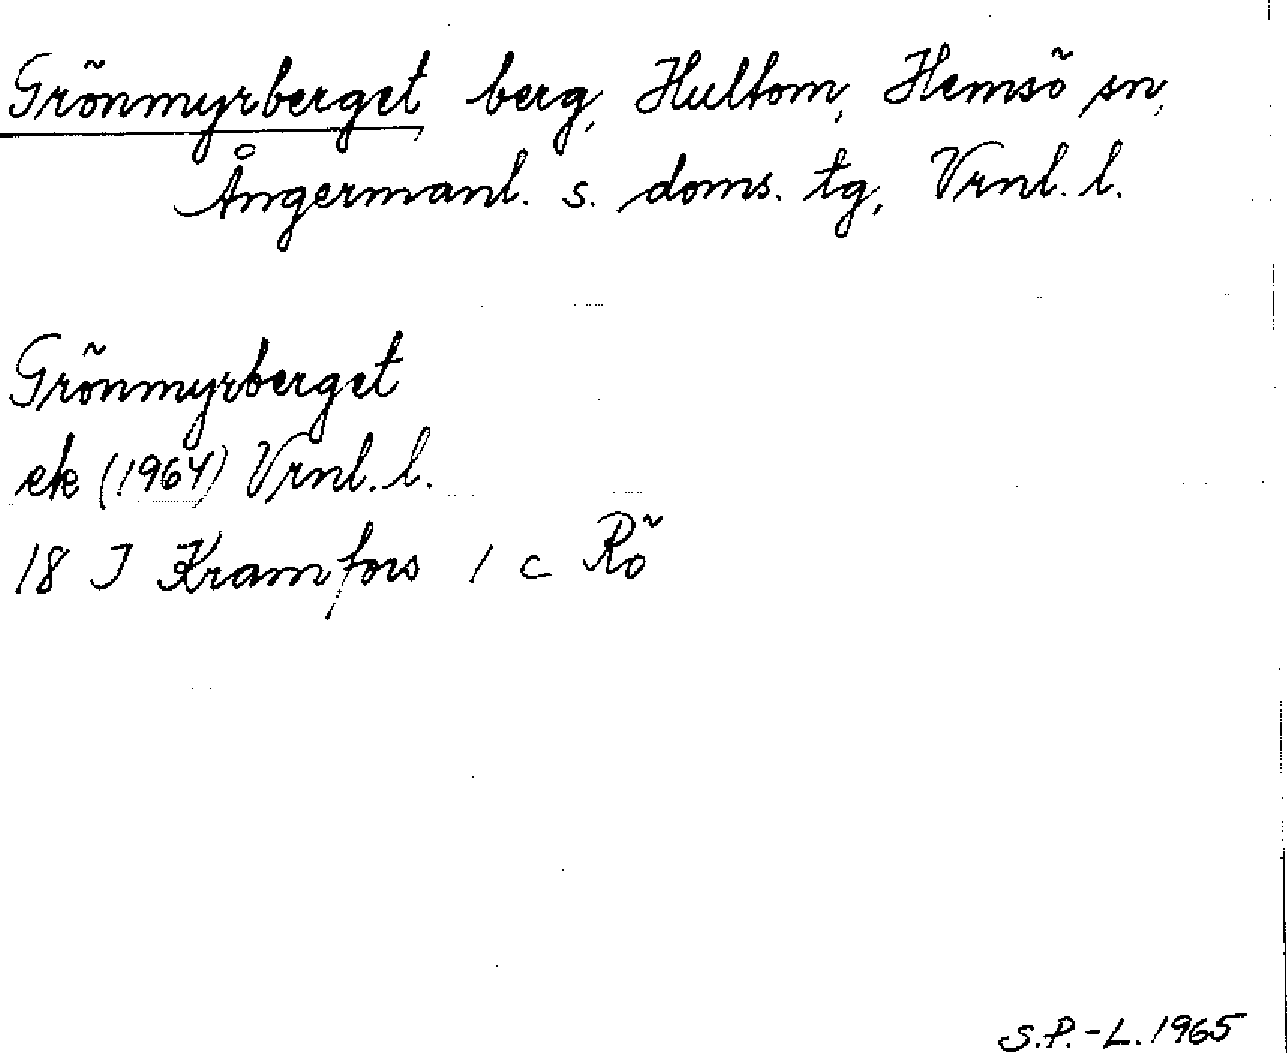 Grönmyrberget berg, Hultom, Hemsö sn,
Ångermanl. s. doms. tg, Vrnl. l.
Grönmyrberget
ek (1964) Vrnl. l.
18 I Kramfors 1 c Rö
S.P.-L. 1965